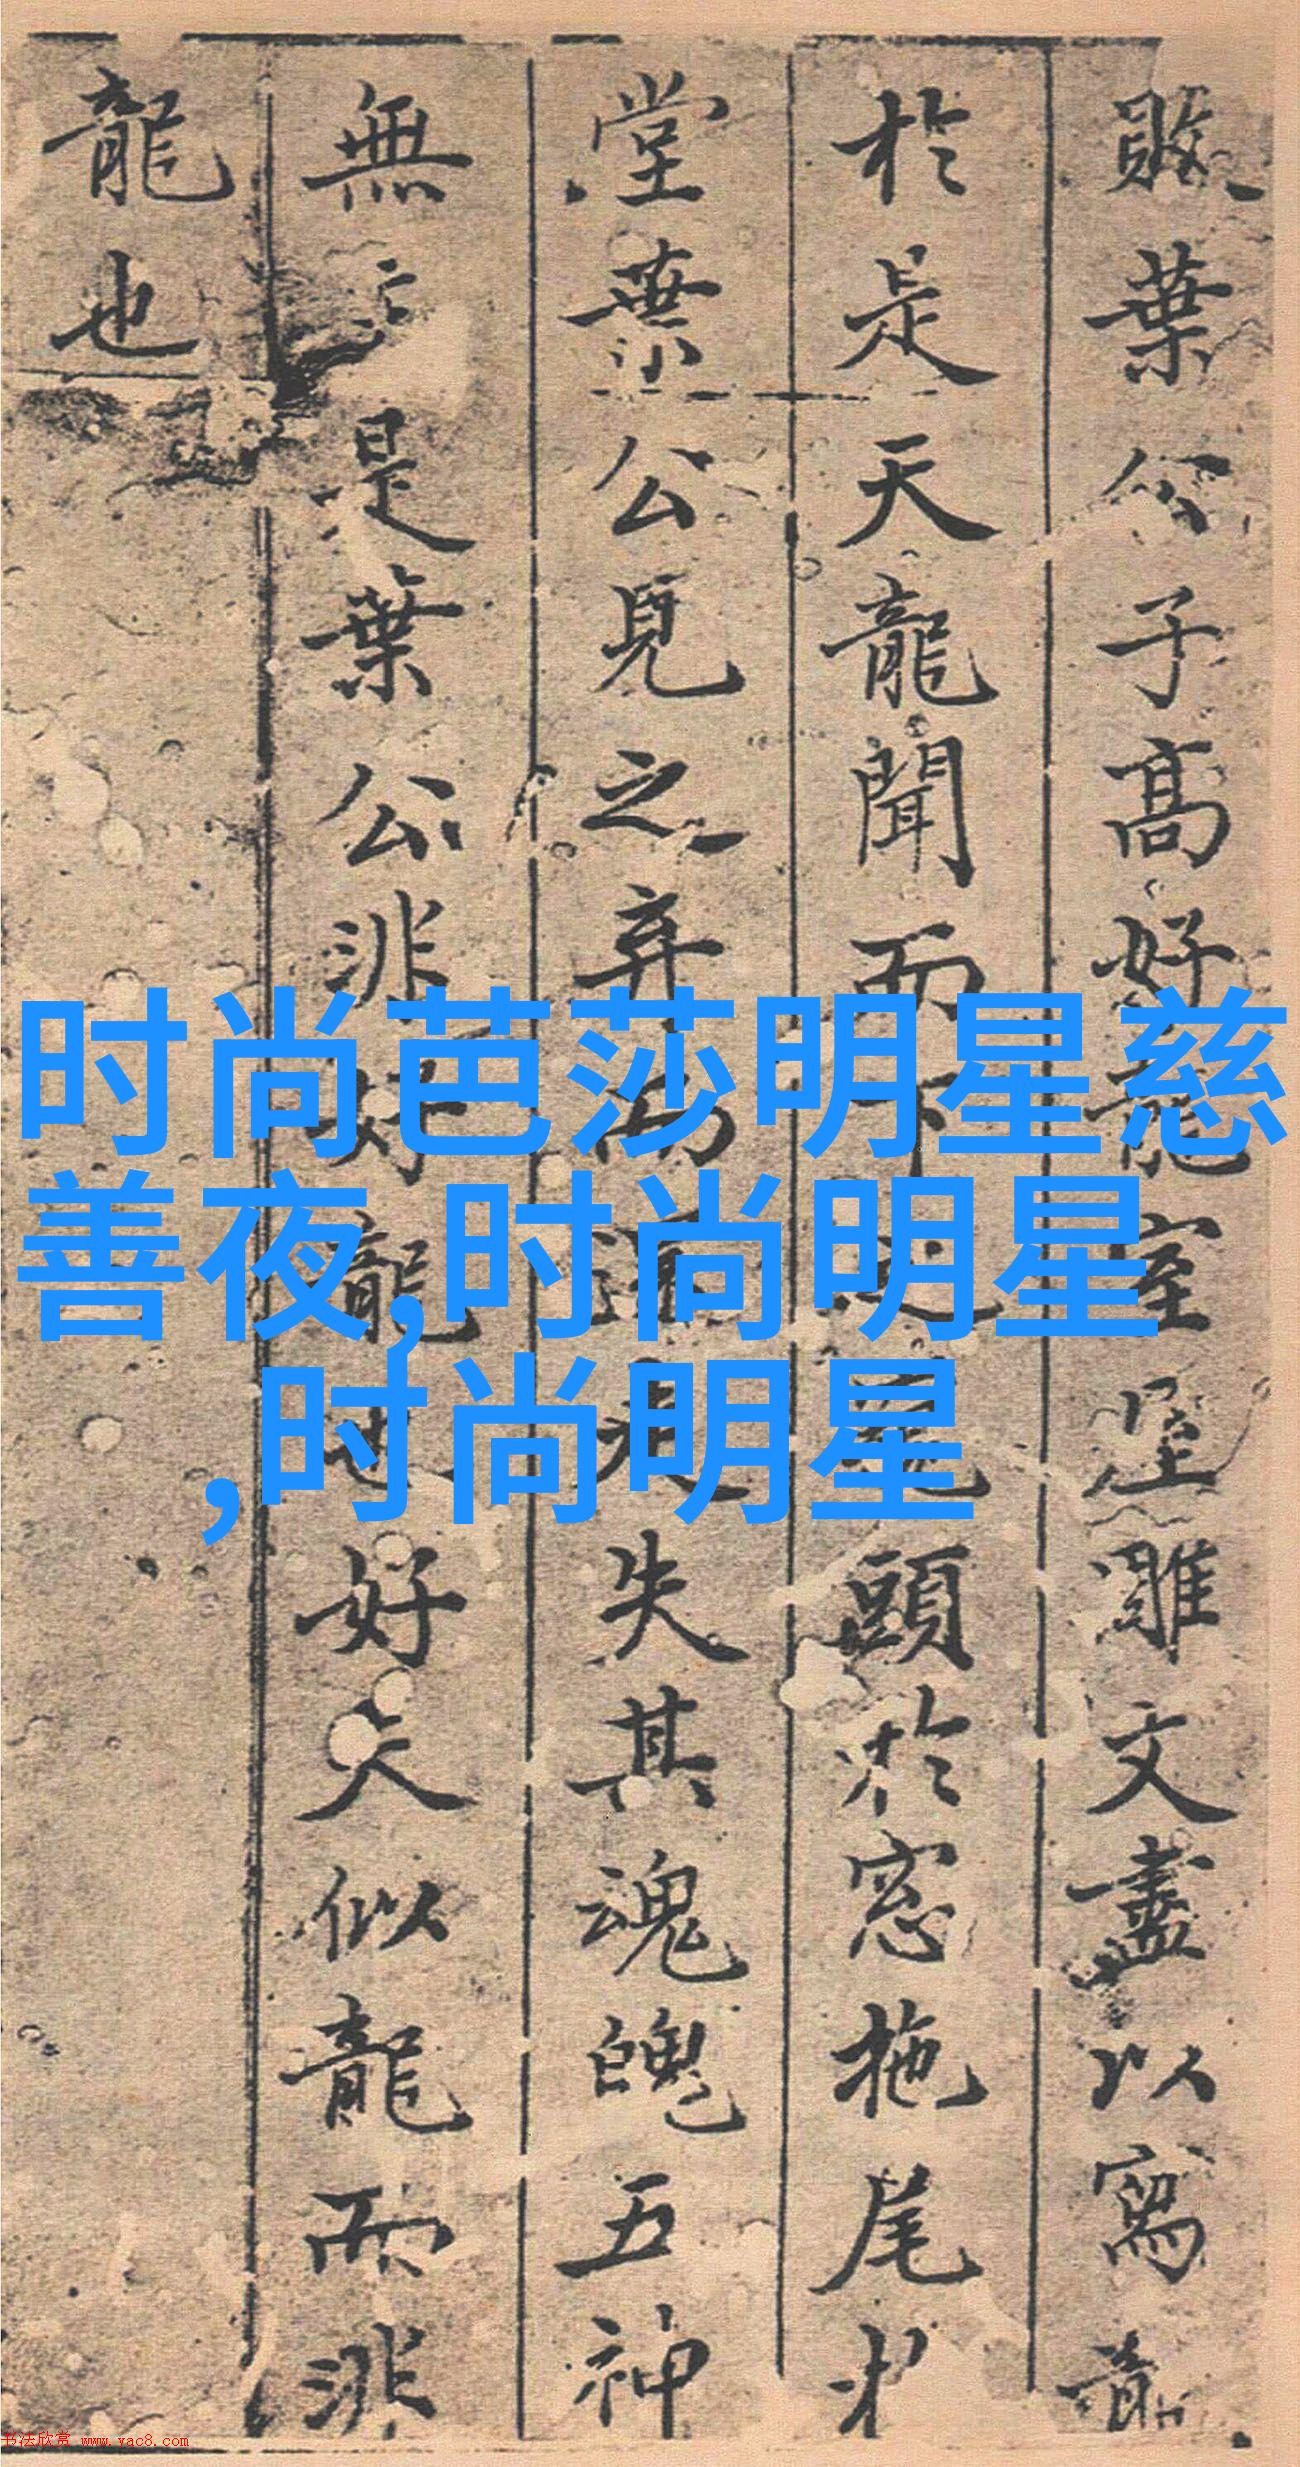 敗葉公子高好龍室屋雕文盡以寫龍
於是天龍聞而下之窺頭於窓拖尾於
堂葉公見之弃而還走失其魂魄五神
無主是葉公非好龍也好夫似龍而非
龍也
时尚芭莎明星慈
善夜,时尚明星
,时尚明星
书法欣赏 www.yac8.com